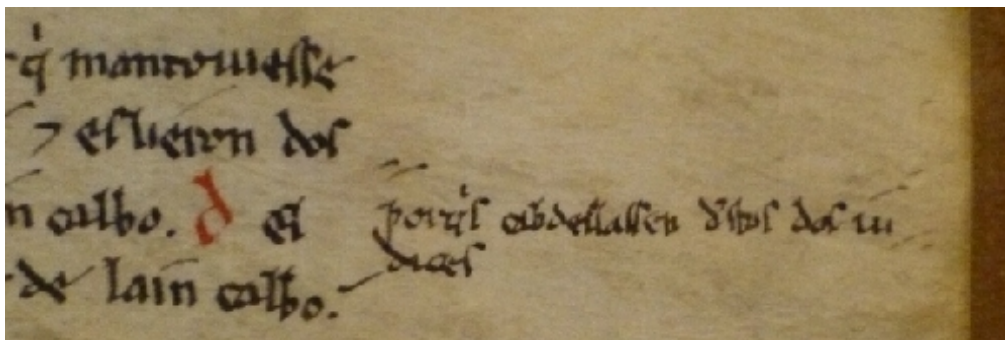 q̇ mantouiesse
⁊ eslieron dos
n calbo. d el
de lain calbo.
porq̇l cabdellassen d'stos dos iu
dices